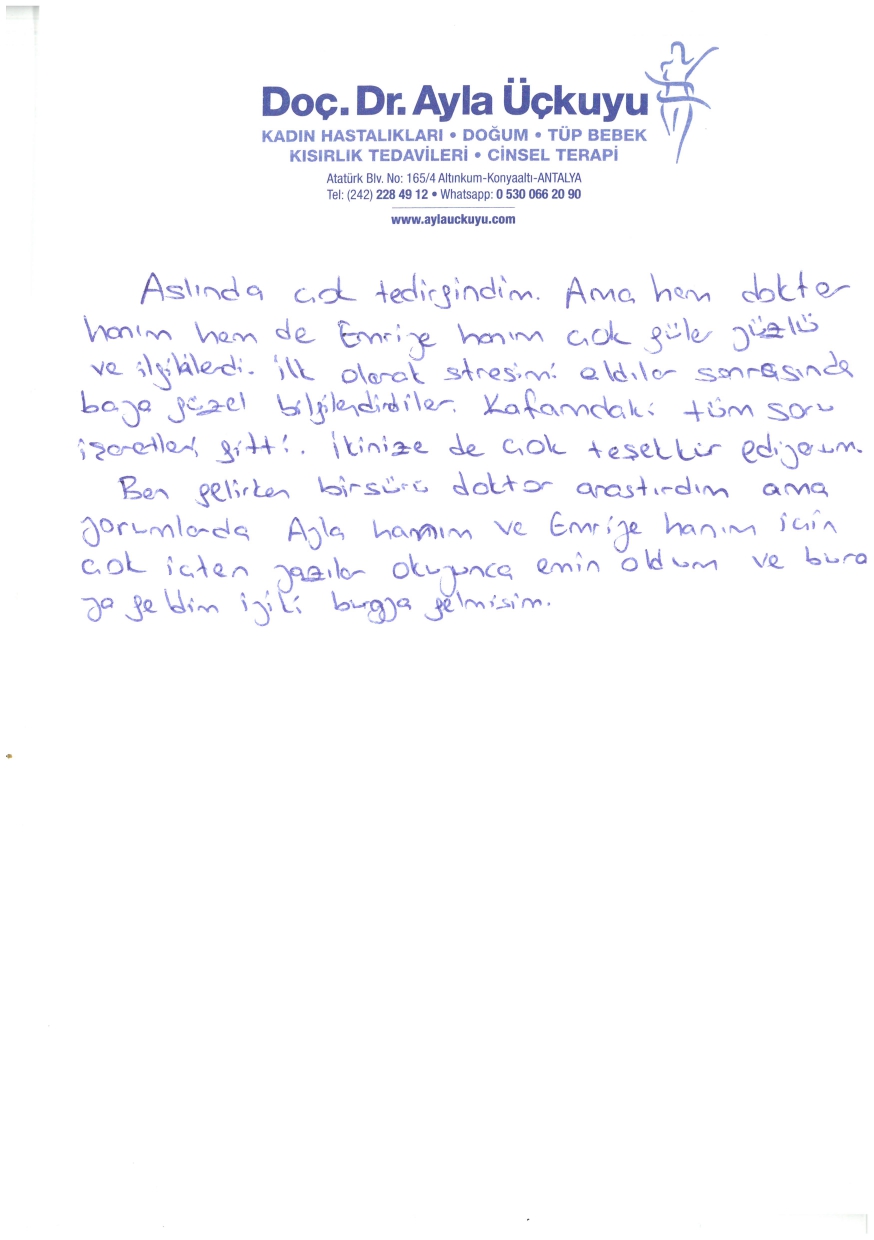 Doç. Dr. Ayla Üçkuyu
KADIN HASTALIKLARI • DOĞUM • TÜP BEBEK
KISIRLIK TEDAVİLERİ • CİNSEL TERAPİ
Atatürk Blv. No: 165/4 Altınkum-Konyaaltı-ANTALYA
Tel: (242) 228 49 12 • Whatsapp: 0 530 066 20 90
www.aylauckuyu.com
Aslında çok tedirgindim. Ama hem dokter
hanım hem de Emriye hanım çok güler yüzlü
ve ilgililerdi. İlk olarak stresimi aldılar sonrasında
baya güzel bilgilendirdiler. Kafamdaki tüm soru
işaretleri gitti. İkinize de çok teşekkür ediyorum.
Ben gelirken birsürü doktor araştırdım ama
yorumlarda Ayla hanım ve Emriye hanım için
çok içten yazılar okuyunca emin oldum ve bura
ya geldim iyiki buraya gelmişim.